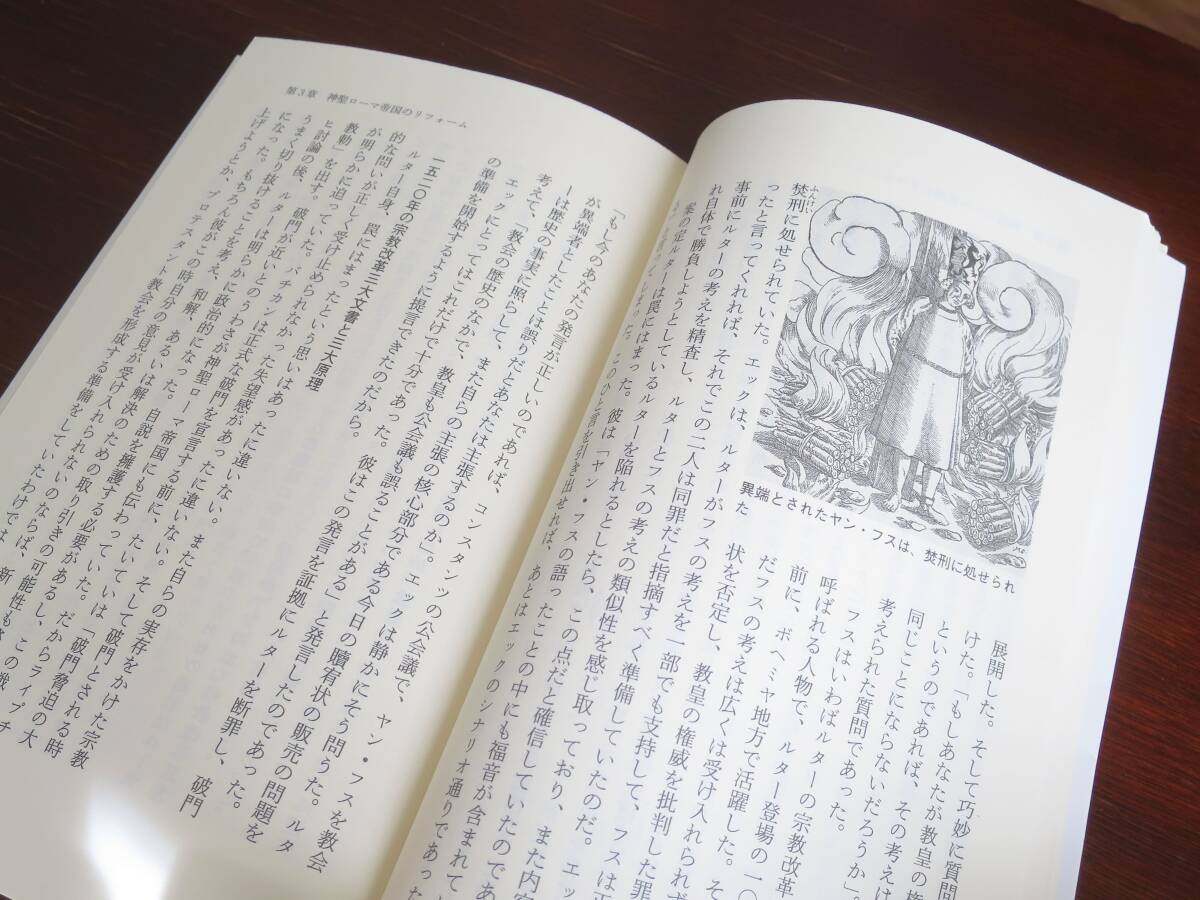 展開した。そして巧妙に質問
けた。「もしあなたが教皇の権
というのであれば、その考えは
同じことにならないだろうか」。
考えられた質問であった。
フスはいわばルターの宗教改革
呼ばれる人物で、ルター登場の一〇
前に、ボヘミヤ地方で活躍した。そ
だフスの考えは広くは受け入れられず
状を否定し、教皇の権威を批判した罪
異端とされたヤン・フスは、焚刑に処せられ
た
焚刑に処せられていた。エックは、ルターがフスの考えを一部でも支持して、フスは正
ふんけい
ったと言ってくれれば、それでこの二人は同罪だと指摘すべく準備していたのだ。エッ
事前にルターの考えを精査し、ルターとフスの考えの類似性を感じ取っており、また内容
れ自体で勝負しようとしているルターを陥れるとしたら、この点だと確信していたのであ
案の定ルターは罠にはまった。彼は「ヤン・フスの語ったことの中にも福音が含まれて
と言ってしまった。このひと言を引き出せれば、あとはエックのシナリオ通りであった
第3章 神聖ローマ帝国のリフォーム
「もし今のあなたの発言が正しいのであれば、コンスタンツの公会議で、ヤン・フスを教会
が異端者としたことは誤りだとあなたは主張するのか」。エックは静かにそう問うた。ルタ
ーは歴史の事実に照らして、また自らの主張の核心部分である今日の贖宥状の販売の問題を
考えて、「教会の歴史のなかで、教皇も公会議も誤ることがある」と発言したのであった。
エックにとってはこれだけで十分であった。彼はこの発言を証拠にルターを断罪し、破門
の準備を開始するように提言できたのだから。
一五二〇年の宗教改革三大文書と三大原理
ルター自身、罠にはまったという思いはあったに違いない。また自らの実存をかけた宗教
的な問いが正しく受け止められなかった失望感があったに違いない。そして破門とされる時
が明らかに迫っていた。バチカンは正式な破門を宣言する前に、たいていは「破門脅迫の大
教勅」を出す。破門が近いとのうわさが神聖ローマ帝国にも伝わっていた。だからライプチ
ヒ討論の後、ルターは明らかに政治的に、和解、あるいは解決のための取り引きの可能性も
うまく切り抜けることを考え、自説を擁護する必要があるし、この戦
になった。もちろん彼がこの時自分の意見が受け入れられないのならば、新
上げようとか、プロテスタント教会を形成する準備をしていたわけでは